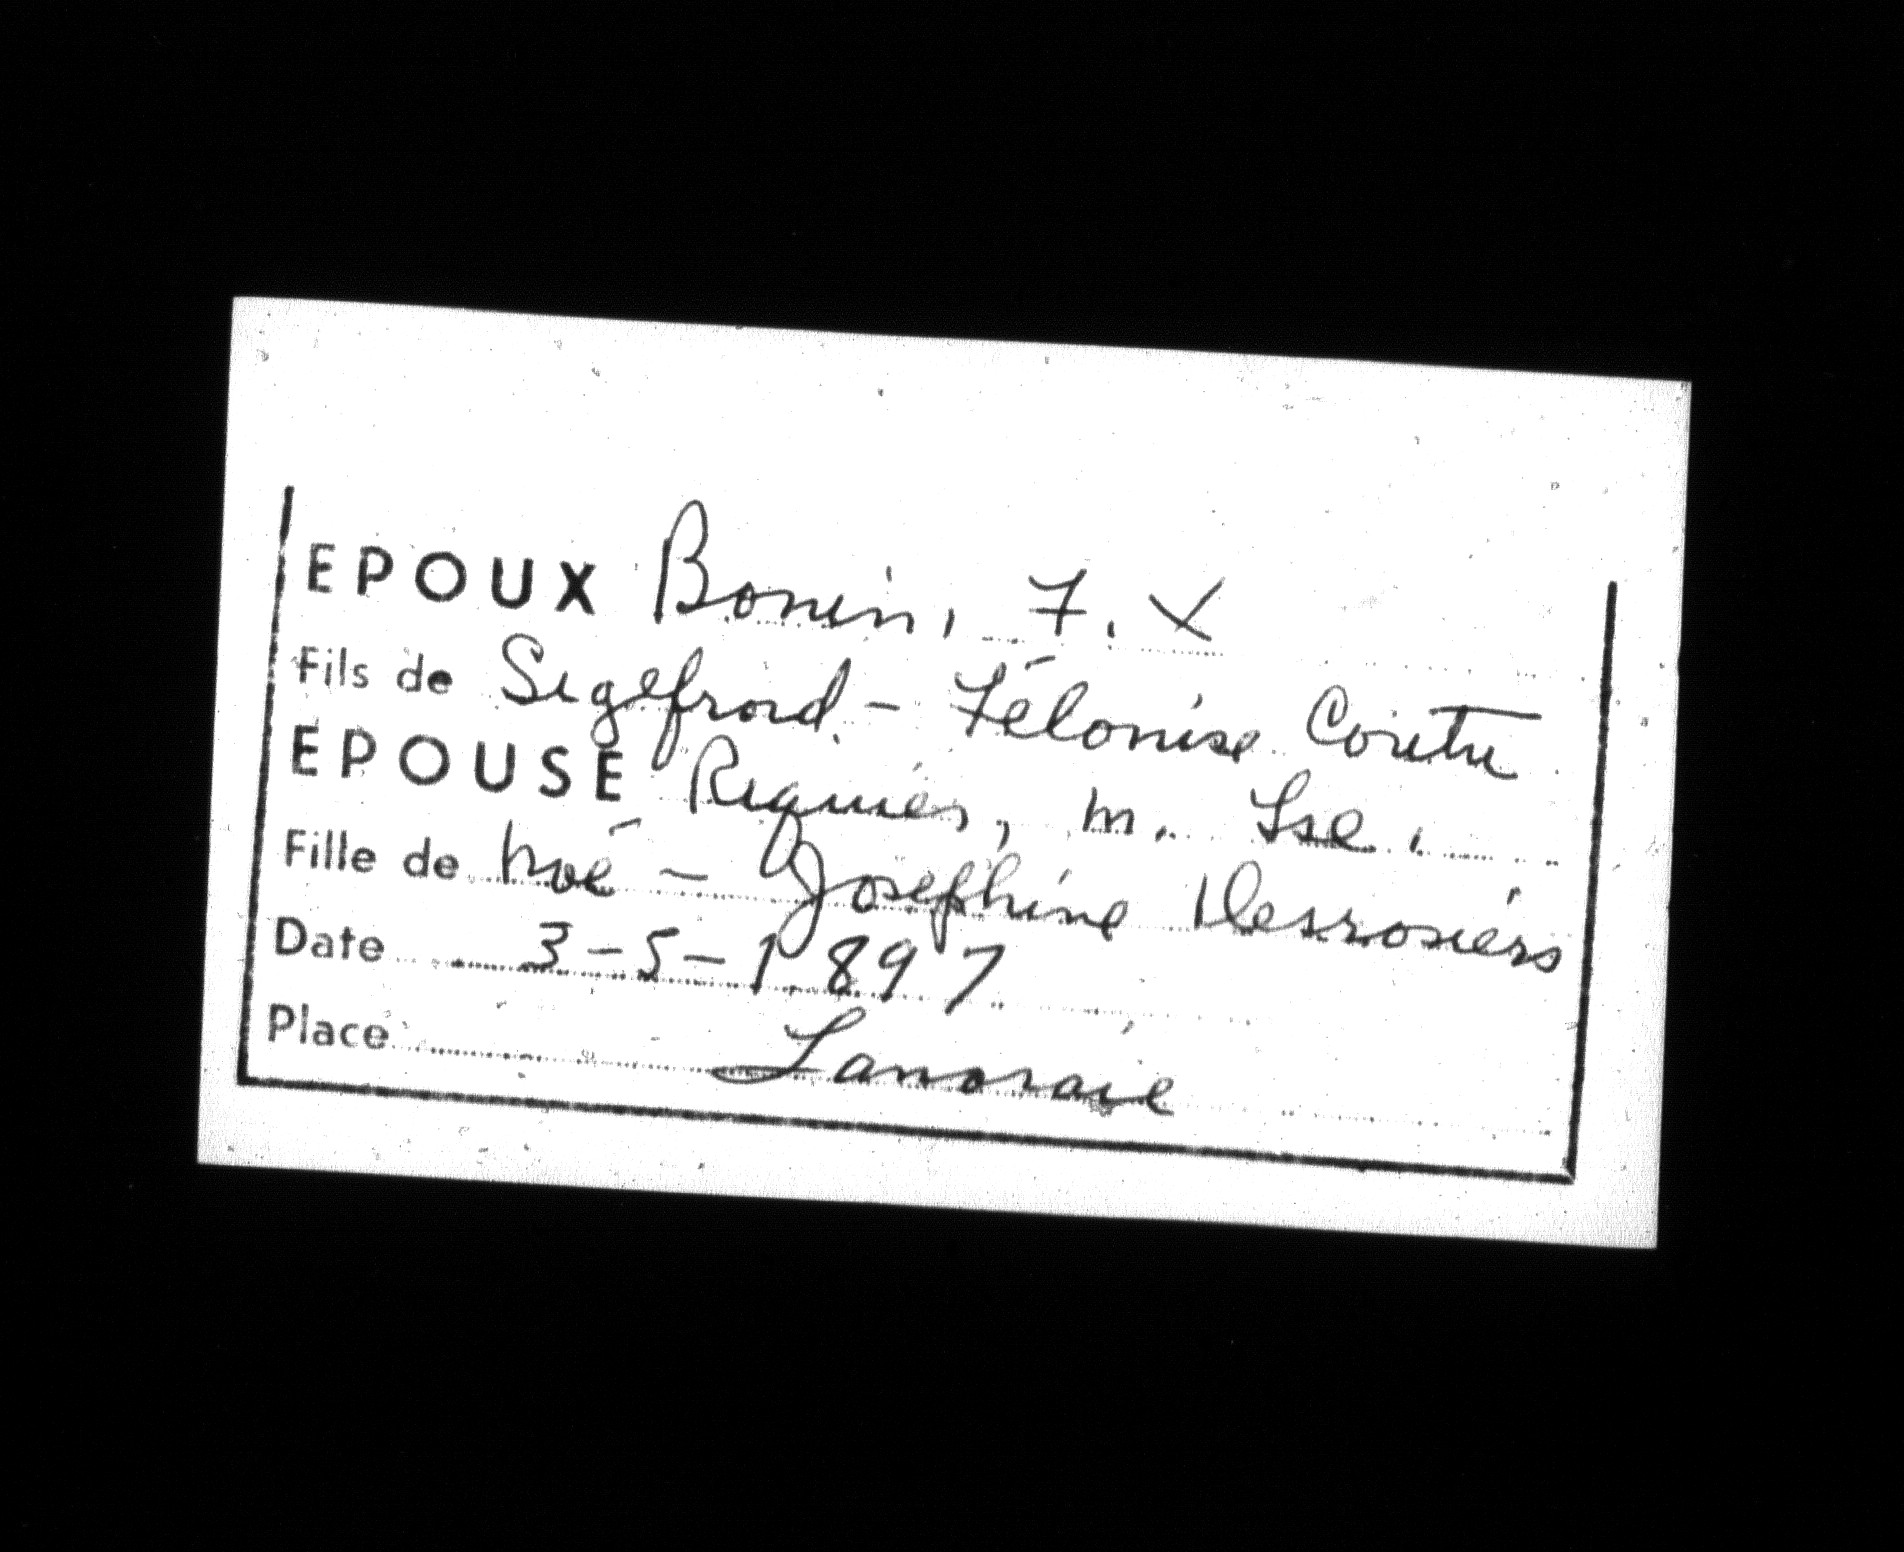 EPOUX Bonin, F. X
Fils de Sigefroid - Félonise Coutu
EPOUSE Riquier, M. Lse.
Fille de Noé - Josephine Desrosiers
Date 3-5-1897
Place Lanoraie